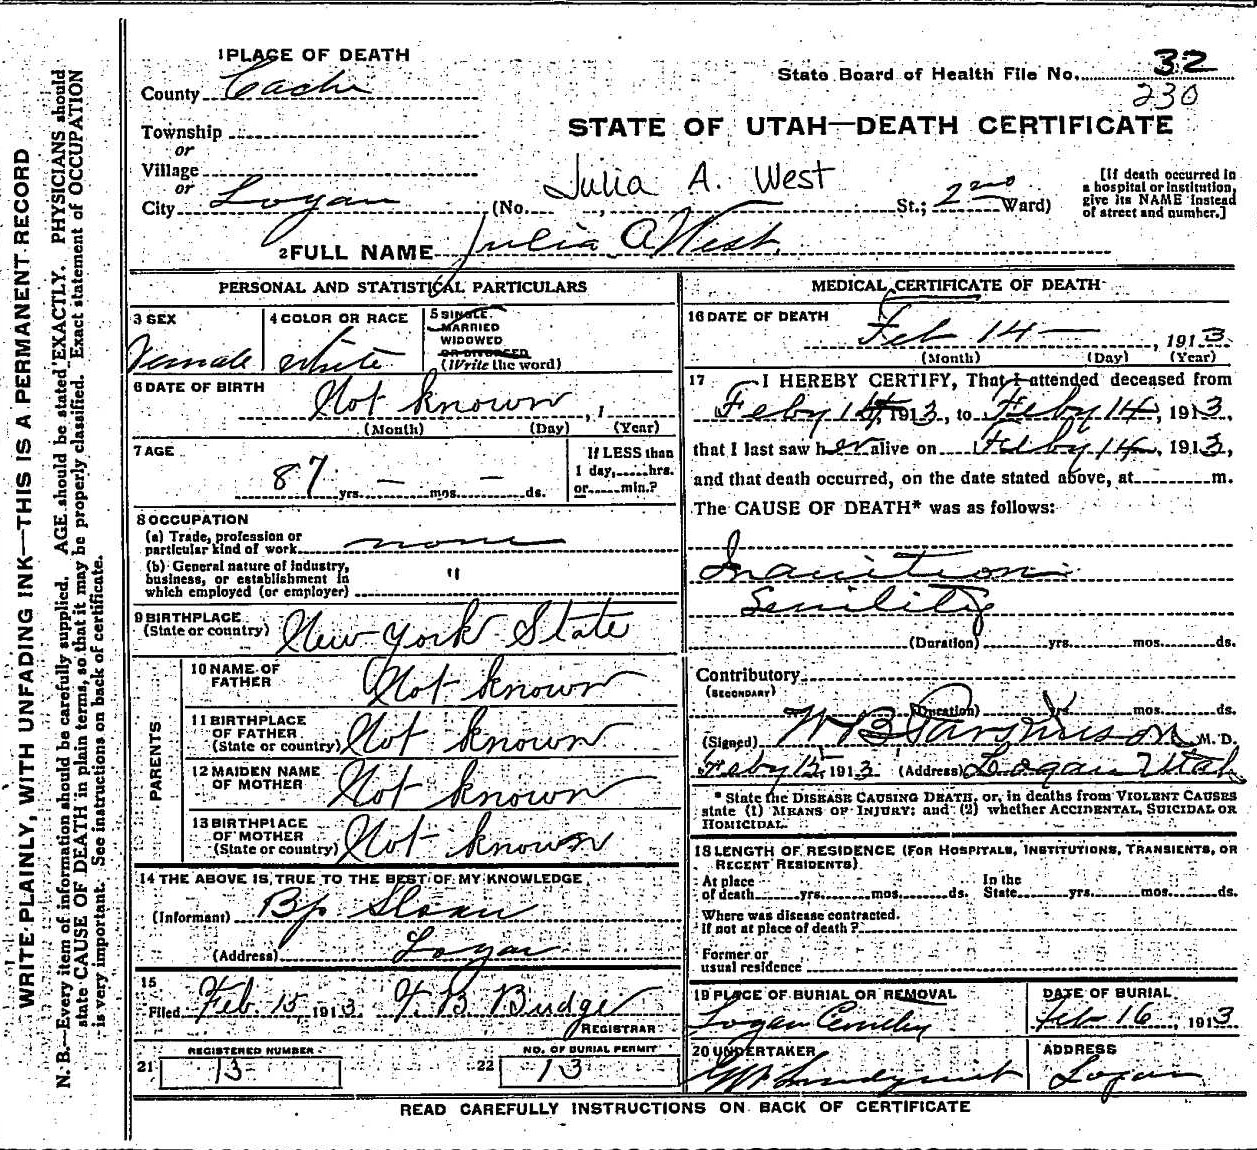 WRITE PLAINLY, WITH UNFADING INK—THIS IS A PERMANENT RECORD
N. B.—Every item of information should be carefully supplied. AGE should be stated EXACTLY. PHYSICIANS should
state CAUSE OF DEATH in plain terms, so that it may be properly classified. Exact statement of OCCUPATION
is very important. See instructions on back of certificate.
1 PLACE OF DEATH
County Cache
Township
or
Village
or
City Logan
State Board of Health File No. 32
230
STATE OF UTAH—DEATH CERTIFICATE
Julia A. West
(No. , St.; 2nd Ward)
[If death occurred in
a hospital or institution,
give its NAME instead
of street and number.]
2 FULL NAME Julia A West
PERSONAL AND STATISTICAL PARTICULARS
3 SEX
Female
4 COLOR OR RACE
White
5 SINGLE
MARRIED
WIDOWED
OR DIVORCED
(Write the word)
6 DATE OF BIRTH
Not known , 1
(Month) (Day) (Year)
7 AGE
87 yrs. — mos. — ds.
If LESS than
1 day, hrs.
or min.?
8 OCCUPATION
(a) Trade, profession or
particular kind of work none
(b) General nature of industry,
business, or establishment in
which employed (or employer) "
9 BIRTHPLACE
(State or country) New York State
PARENTS
10 NAME OF
FATHER Not known
11 BIRTHPLACE
OF FATHER
(State or country) Not known
12 MAIDEN NAME
OF MOTHER Not known
13 BIRTHPLACE
OF MOTHER
(State or country) Not known
14 THE ABOVE IS TRUE TO THE BEST OF MY KNOWLEDGE
(Informant) Bp Sloan
(Address) Logan
15
Filed Feb. 15 1913. T. B. Budge
REGISTRAR
21 REGISTERED NUMBER
13
22 NO. OF BURIAL PERMIT
13
MEDICAL CERTIFICATE OF DEATH
16 DATE OF DEATH
Feb 14 — , 1913.
(Month) (Day) (Year)
17 I HEREBY CERTIFY, That I attended deceased from
Feby 14, 1913, to Feby 14, 1913,
that I last saw her alive on Feby 14, 1913,
and that death occurred, on the date stated above, at m.
The CAUSE OF DEATH* was as follows:
Inanition
Senility
(Duration) yrs. mos. ds.
Contributory
(SECONDARY)
(Duration) yrs. mos. ds.
(Signed) W B Parkinson M. D.
Feby 15, 1913 (Address) Logan Utah
* State the DISEASE CAUSING DEATH, or, in deaths from VIOLENT CAUSES
state (1) MEANS OF INJURY; and (2) whether ACCIDENTAL, SUICIDAL OR
HOMICIDAL.
18 LENGTH OF RESIDENCE (FOR HOSPITALS, INSTITUTIONS, TRANSIENTS, OR
RECENT RESIDENTS)
At place
of death yrs. mos. ds.
In the
State yrs. mos. ds.
Where was disease contracted.
If not at place of death?
Former or
usual residence
19 PLACE OF BURIAL OR REMOVAL
Logan Cemetey
DATE OF BURIAL
Feb 16, 1913
20 UNDERTAKER
Lundquist
ADDRESS
Logan
READ CAREFULLY INSTRUCTIONS ON BACK OF CERTIFICATE